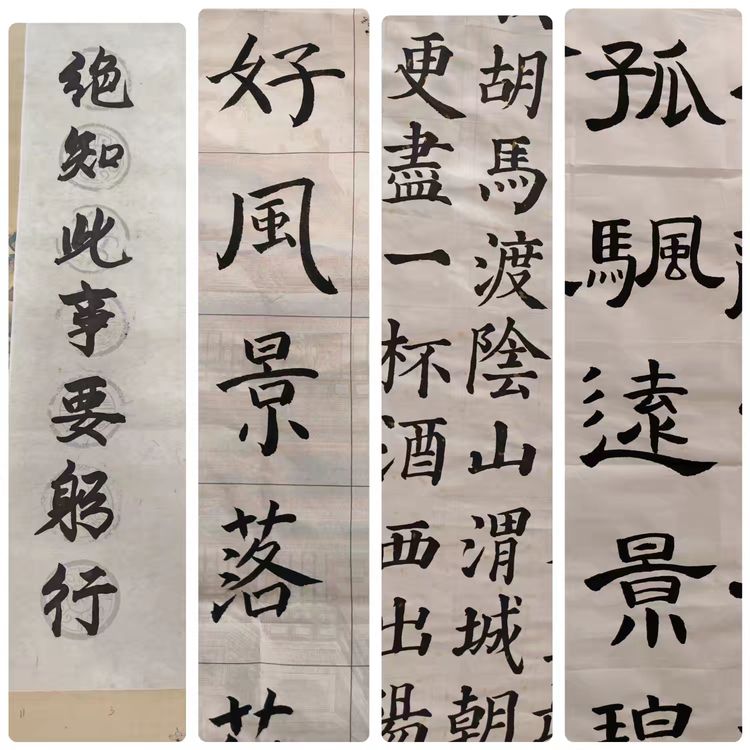 绝知此事要躬行
好風景落
胡馬渡陰山渭城朝
更盡一杯酒西出陽
孤颿遠景碧